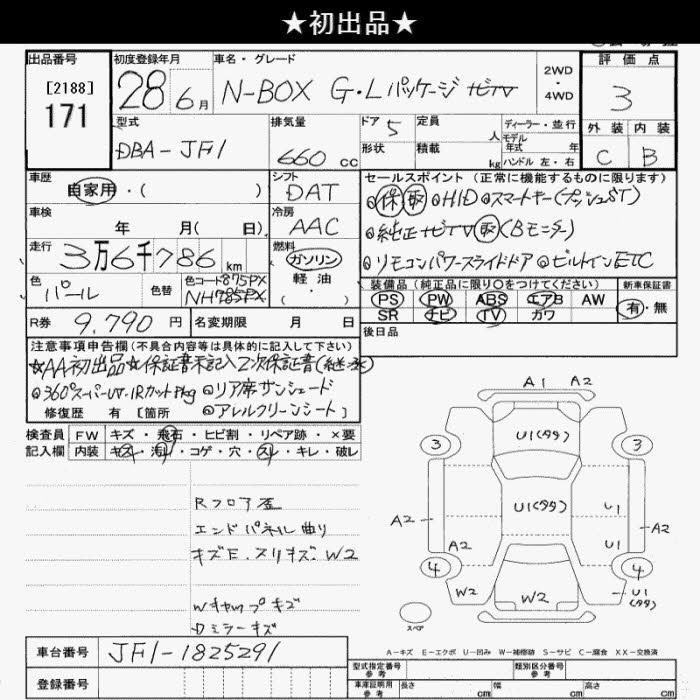 ★初出品★
出品番号
[2188]
171
初度登録年月
28 6月
車名・グレード
N-BOX G・Lパッケージ ナビTV
2WD
・
4WD
評価点
3
外装 内装
C B
型式
DBA-JF1
排気量
660 cc
ドア 5
定員 人
形状
積載 kg
ディーラー・並行
モデル
年式 年
ハンドル 左・右
車歴
自家用・( )
シフト
DAT
車検
年 月( 日)
冷房
AAC
走行
3万6千786 km
燃料
ガソリン
軽油
・
( )
色
パール
色替
色コード 875PX
NH785PX
R券 9,790円
名変期限 月 日
セールスポイント(正常に機能するものに限ります)
◎保 取 ◎HID ◎スマートキー(プッシュST)
◎純正ナビTV 取 (Bモニター)
◎リモコンパワースライドドア ◎ビルトインETC
装備品(純正品に限り○をつけてください)
PS PW ABS エアB AW
SR ナビ TV カワ
新車保証書
有・無
後日品
注意事項申告欄(不具合内容等は具体的に記入して下さい)
☆AA初出品☆保証書未記入2次保証書(継承)
◎360°スーパーUV・IRカットPkg ◎リア席サンシェード
修復歴 有 [箇所 ◎アレルクリーンシート]
検査員
記入欄
FW キズ・飛石・ヒビ割・リペア跡・×要
内装 キズ・汚れ・コゲ・穴・スレ・キレ・破レ
Rフロア歪
エンドパネル曲り
キズE.スリキズ.W2
Wキャップキズ
ミラーキズ
A1 A2
3 U1(タタ) 3
A2 U1(タタ) U1 A2
A2 U1
4 4
W2 W2 U1
(タタ)
スペア
A-キズ E-エクボ U-凹み W-補修跡 S-サビ C-腐食 XX-交換済
車台番号 JF1-1825291
登録番号
型式指定番号
参考
類別区分番号
参考
車庫証明用
参考
長さ cm 幅 cm 高さ cm